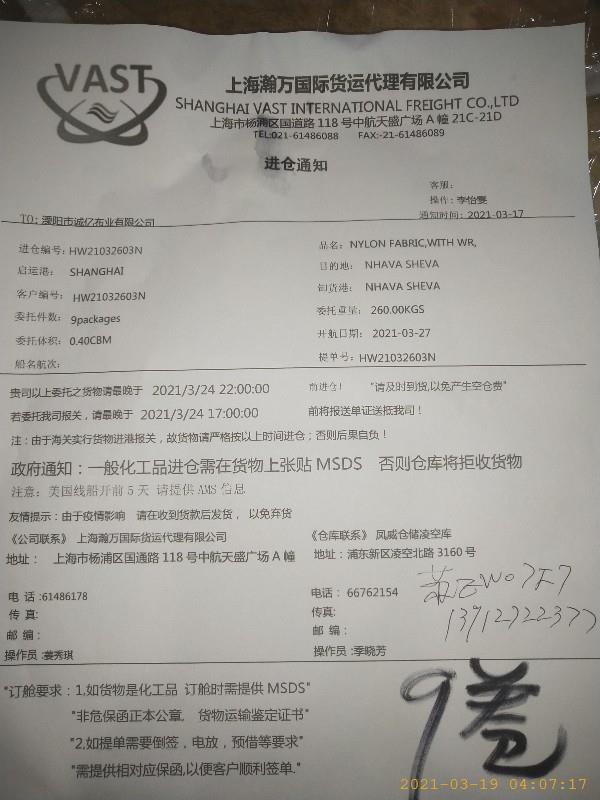 VAST
上海瀚万国际货运代理有限公司
SHANGHAI VAST INTERNATIONAL FREIGHT CO.,LTD
上海市杨浦区国道路 118 号中航天盛广场 A 幢 21C-21D
TEL:021-61486088 FAX:-21-61486089
进仓通知
客服：
操作：李怡雯
TO: 溧阳市诚亿布业有限公司 通知时间：2021-03-17
进仓编号：HW21032603N 品名：NYLON FABRIC,WITH WR,
启运港： SHANGHAI 目的地： NHAVA SHEVA
客户编号： HW21032603N 卸货港： NHAVA SHEVA
委托件数： 9packages 委托重量： 260.00KGS
委托体积： 0.40CBM 开航日期： 2021-03-27
船名航次： 提单号：HW21032603N
贵司以上委托之货物请最晚于 2021/3/24 22:00:00 前进仓！ "请及时到货,以免产生空仓费"
若委托我司报关，请最晚于 2021/3/24 17:00:00 前将报送单证送抵我司！
注：由于海关实行货物进港报关，故货物请严格按以上时间进仓；否则后果自负！
政府通知：一般化工品进仓需在货物上张贴 MSDS 否则仓库将拒收货物
注意：美国线船开前 5 天 请提供 AMS 信息
友情提示：由于疫情影响 请在收到货款后发货， 以免弃货
《公司联系》 上海瀚万国际货运代理有限公司 《仓库联系》 凤威仓储凌空库
地址： 上海市杨浦区国通路 118 号中航天盛广场 A 幢 地址：浦东新区凌空北路 3160 号
电 话 :61486178 电话： 66762154
传 真: 传真:
邮 编： 邮 编：
操作员 :姜秀琪 操作员 :季晓芳
13912722377
"订舱要求：1,如货物是化工品 订舱时需提供 MSDS"
"非危保函正本公章, 货物运输鉴定证书"
"2,如提单需要倒签，电放，预借等要求"
"需提供相对应保函,以便客户顺利签单."
9卷
2021-03-19 04:07:17